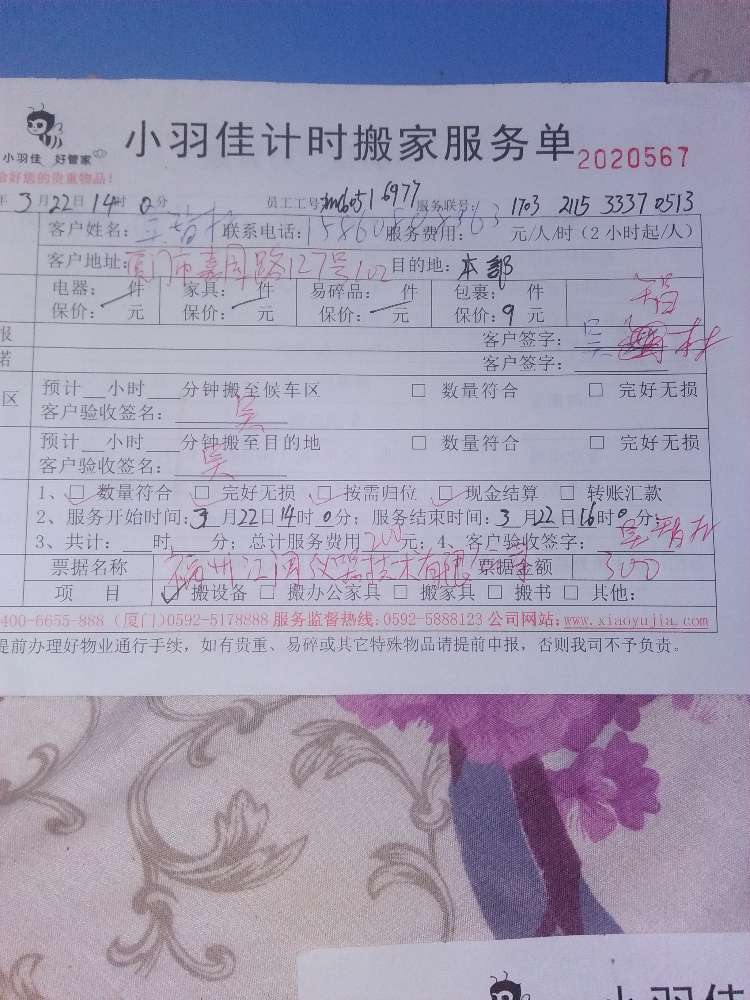 小羽佳 好管家
小羽佳计时搬家服务单
2020567
您的贵重物品!
年 3月22日14时0分 员工工号: 服务联号: 1703 2115 3337 0513
客户姓名: 联系电话: 服务费用: 元/人/时(2小时起/人)
客户地址:厦门市嘉园路127号102 目的地:本部
电器: 件 家具: 件 易碎品: 件 包裹: 件
保价: 元 保价: 元 保价: 元 保价:9元
报 客户签字:吴
诺 客户签字:
区 预计 小时 分钟搬至候车区 □ 数量符合 □ 完好无损
客户验收签名: 吴
预计 小时 分钟搬至目的地 □ 数量符合 □ 完好无损
客户验收签名: 吴
1、☑ 数量符合 ☑ 完好无损 ☑ 按需归位 ☑ 现金结算 □ 转账汇款
2、服务开始时间:3月22日14时0分;服务结束时间:3月22日16时0分;
3、共计: 时 分;总计服务费用200元;4、客户验收签字:吴智
票据名称 福州 仪器技术有限公司 票据金额 300
项 目 ☑ 搬设备 □ 搬办公家具 □ 搬家具 □ 搬书 □ 其他:
400-6655-888 (厦门)0592-5178888 服务监督热线:0592-5888123 公司网站:www.xiaoyujia.com
提前办理好物业通行手续,如有贵重、易碎或其它特殊物品请提前申报,否则我司不予负责。
小羽佳